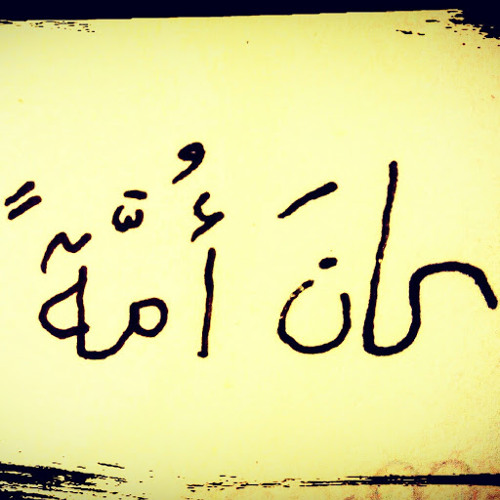 كانَ أُمَّةً